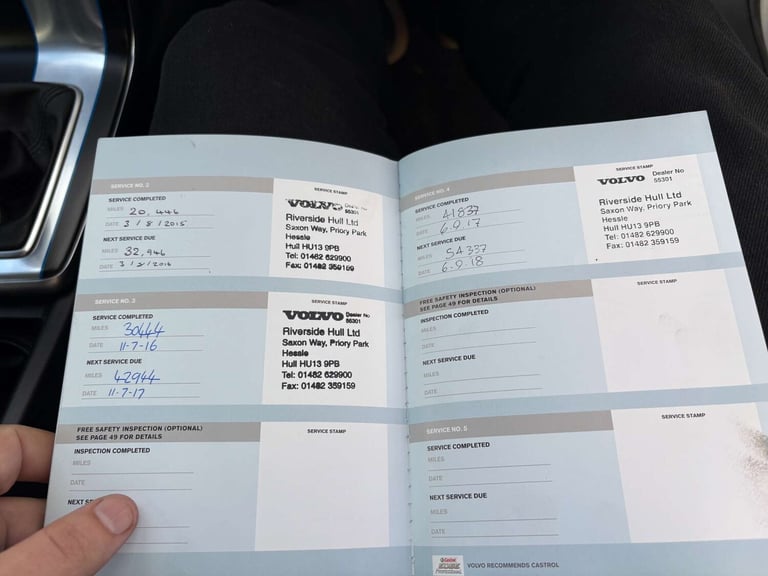 SERVICE NO. 2
SERVICE STAMP
SERVICE COMPLETED
MILES 20,446
DATE 3/8/2015
NEXT SERVICE DUE
MILES 32,946
DATE 3/8/2016
VOLVO Dealer No
55301
Riverside Hull Ltd
Saxon Way, Priory Park
Hessle
Hull HU13 9PB
Tel: 01482 629900
Fax: 01482 359159
SERVICE NO. 3
SERVICE STAMP
SERVICE COMPLETED
MILES 30444
DATE 11-7-16
NEXT SERVICE DUE
MILES 42944
DATE 11-7-17
VOLVO Dealer No
55301
Riverside Hull Ltd
Saxon Way, Priory Park
Hessle
Hull HU13 9PB
Tel: 01482 629900
Fax: 01482 359159
FREE SAFETY INSPECTION (OPTIONAL)
SEE PAGE 49 FOR DETAILS
SERVICE STAMP
INSPECTION COMPLETED
MILES
DATE
NEXT
SERVICE NO. 4
SERVICE STAMP
SERVICE COMPLETED
MILES 41837
DATE 6.9.17
NEXT SERVICE DUE
MILES 54337
DATE 6.9.18
VOLVO Dealer No
55301
Riverside Hull Ltd
Saxon Way, Priory Park
Hessle
Hull HU13 9PB
Tel: 01482 629900
Fax: 01482 359159
FREE SAFETY INSPECTION (OPTIONAL)
SEE PAGE 49 FOR DETAILS
SERVICE STAMP
INSPECTION COMPLETED
MILES
DATE
NEXT SERVICE DUE
MILES
DATE
SERVICE NO. 5
SERVICE STAMP
SERVICE COMPLETED
MILES
DATE
NEXT SERVICE DUE
MILES
DATE
Castrol
EDGE
Professional
VOLVO RECOMMENDS CASTROL